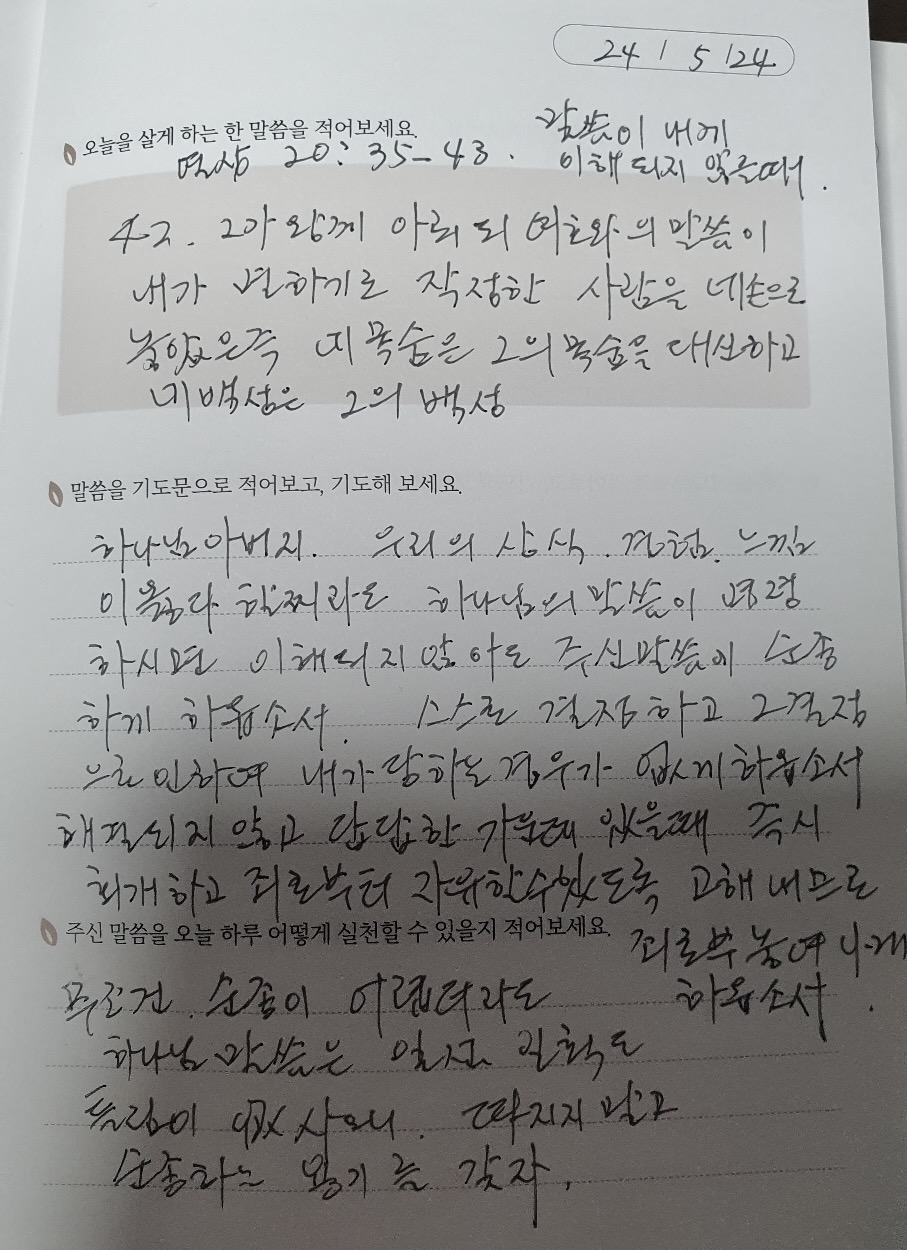 24 / 5 / 24
오늘을 살게 하는 한 말씀을 적어보세요.
말씀이 내게
열상 20:35-43.
이해 되지 않을때.
42. 그가 왕께 아뢰되 여호와의 말씀이
내가 멸하기로 작정한 사람을 네손으로
놓았은즉 네 목숨은 그의 목숨을 대신하고
네 백성은 그의 백성
말씀을 기도문으로 적어보고, 기도해 보세요.
하나님아버지. 우리의 상식. 경험. 느낌
이옳다 할찌라도 하나님의 말씀이 명령
하시면 이해되지 않아도 주신말씀에 순종
하게 하옵소서. 스스로 결정하고 그결정
으로 인하여 내가 당하는 경우가 없게하옵소서
해결되지 않고 답답한 가운데 있을때 즉시
회개하고 죄로부터 자유할수있도록 고해 내므로
주신 말씀을 오늘 하루 어떻게 실천할 수 있을지 적어보세요.
죄로부 놓여 나게
하옵소서.
무조건 순종이 어렵더라도
하나님 말씀은 일점 일획도
틀림이 없사오니. 따지지 말고
순종하는 용기를 갖자.